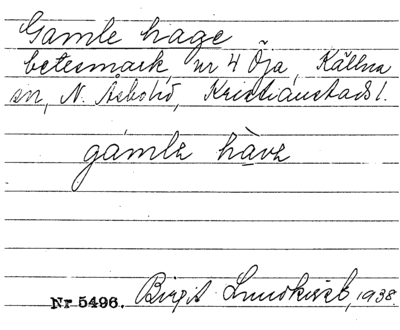 Gamle hage
betesmark nr 4 Öja, Källna
sn, N. Åsbo hd, Kristianstads l.
gámlə hàvə
Nr 5496. Birgit 1938.